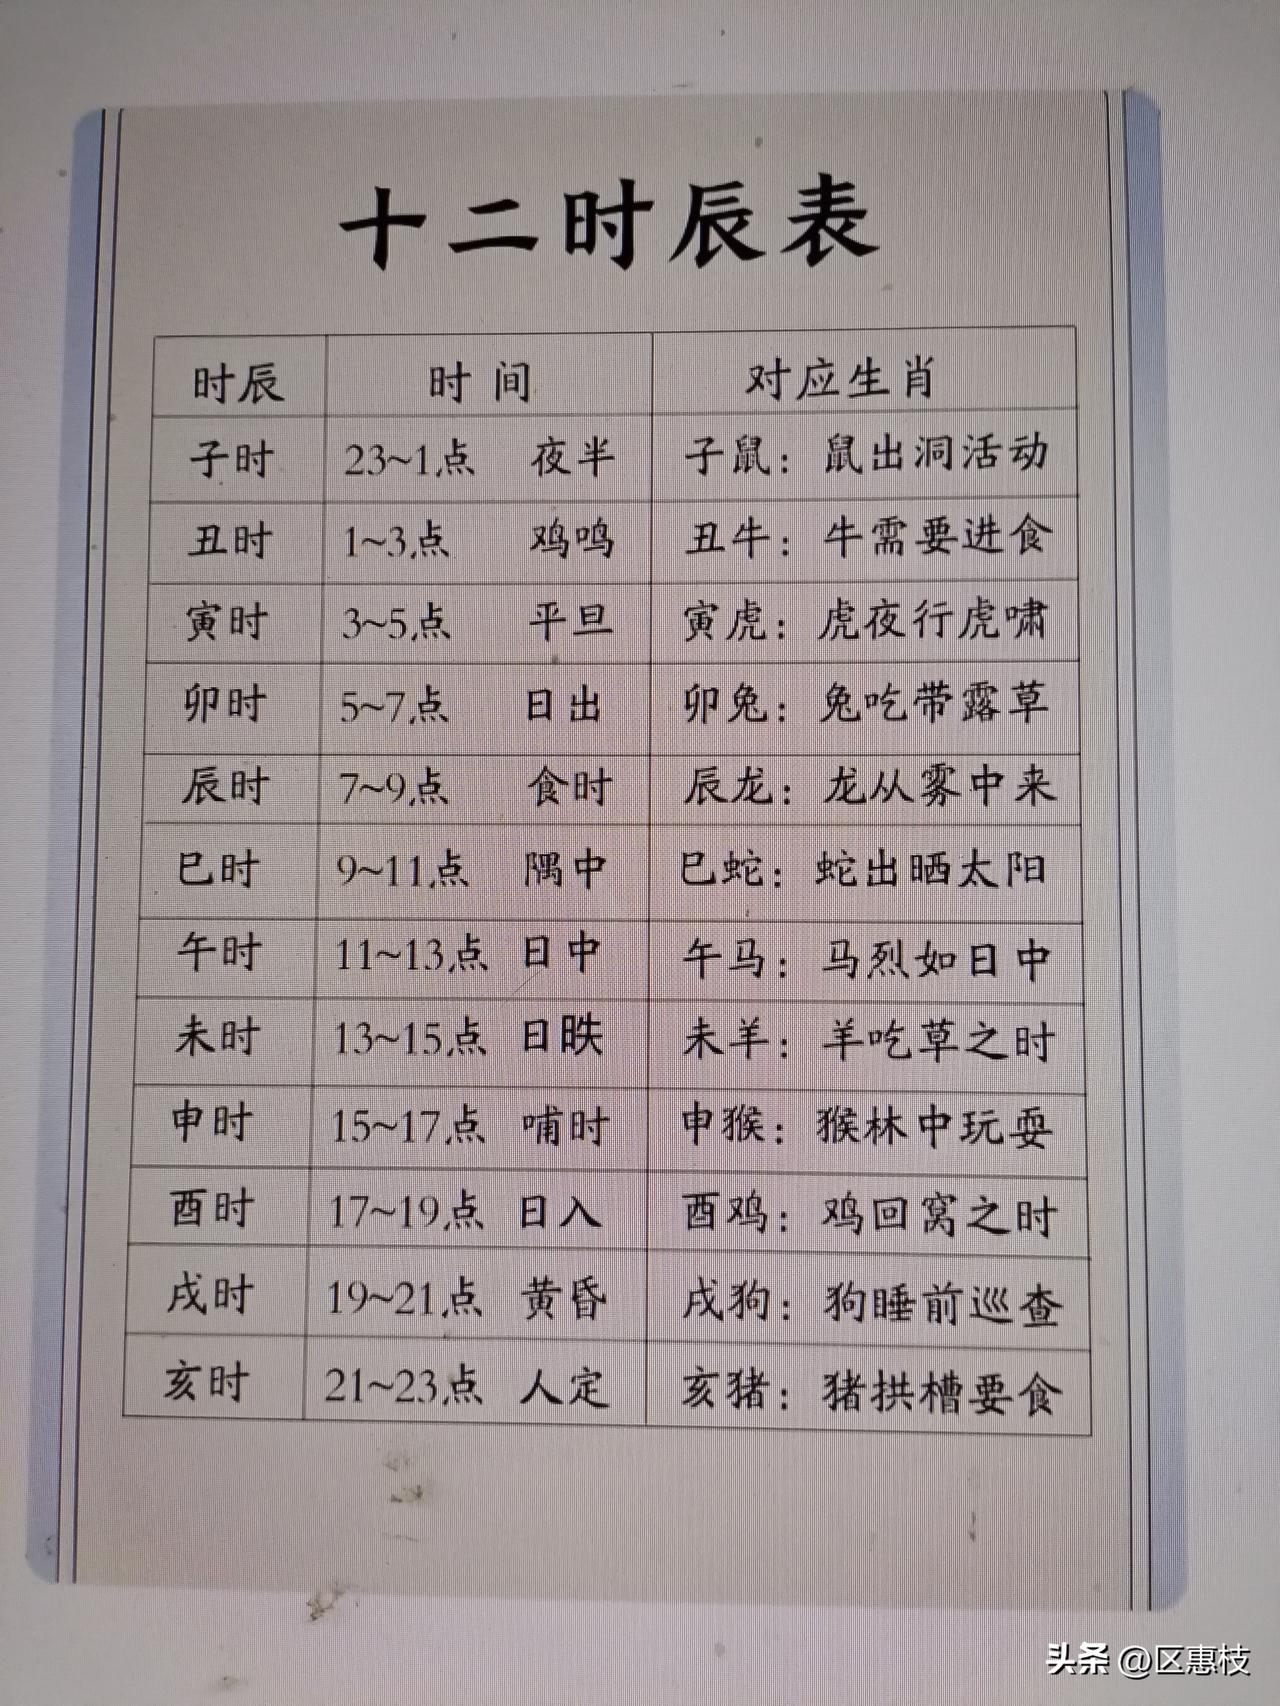 十二时辰表
时辰 时间 对应生肖
子时 23~1点 夜半 子鼠：鼠出洞活动
丑时 1~3点 鸡鸣 丑牛：牛需要进食
寅时 3~5点 平旦 寅虎：虎夜行虎啸
卯时 5~7点 日出 卯兔：兔吃带露草
辰时 7~9点 食时 辰龙：龙从雾中来
巳时 9~11点 隅中 巳蛇：蛇出晒太阳
午时 11~13点 日中 午马：马烈如日中
未时 13~15点 日昳 未羊：羊吃草之时
申时 15~17点 哺时 申猴：猴林中玩耍
酉时 17~19点 日入 酉鸡：鸡回窝之时
戌时 19~21点 黄昏 戌狗：狗睡前巡查
亥时 21~23点 人定 亥猪：猪拱槽要食
头条 @区惠枝